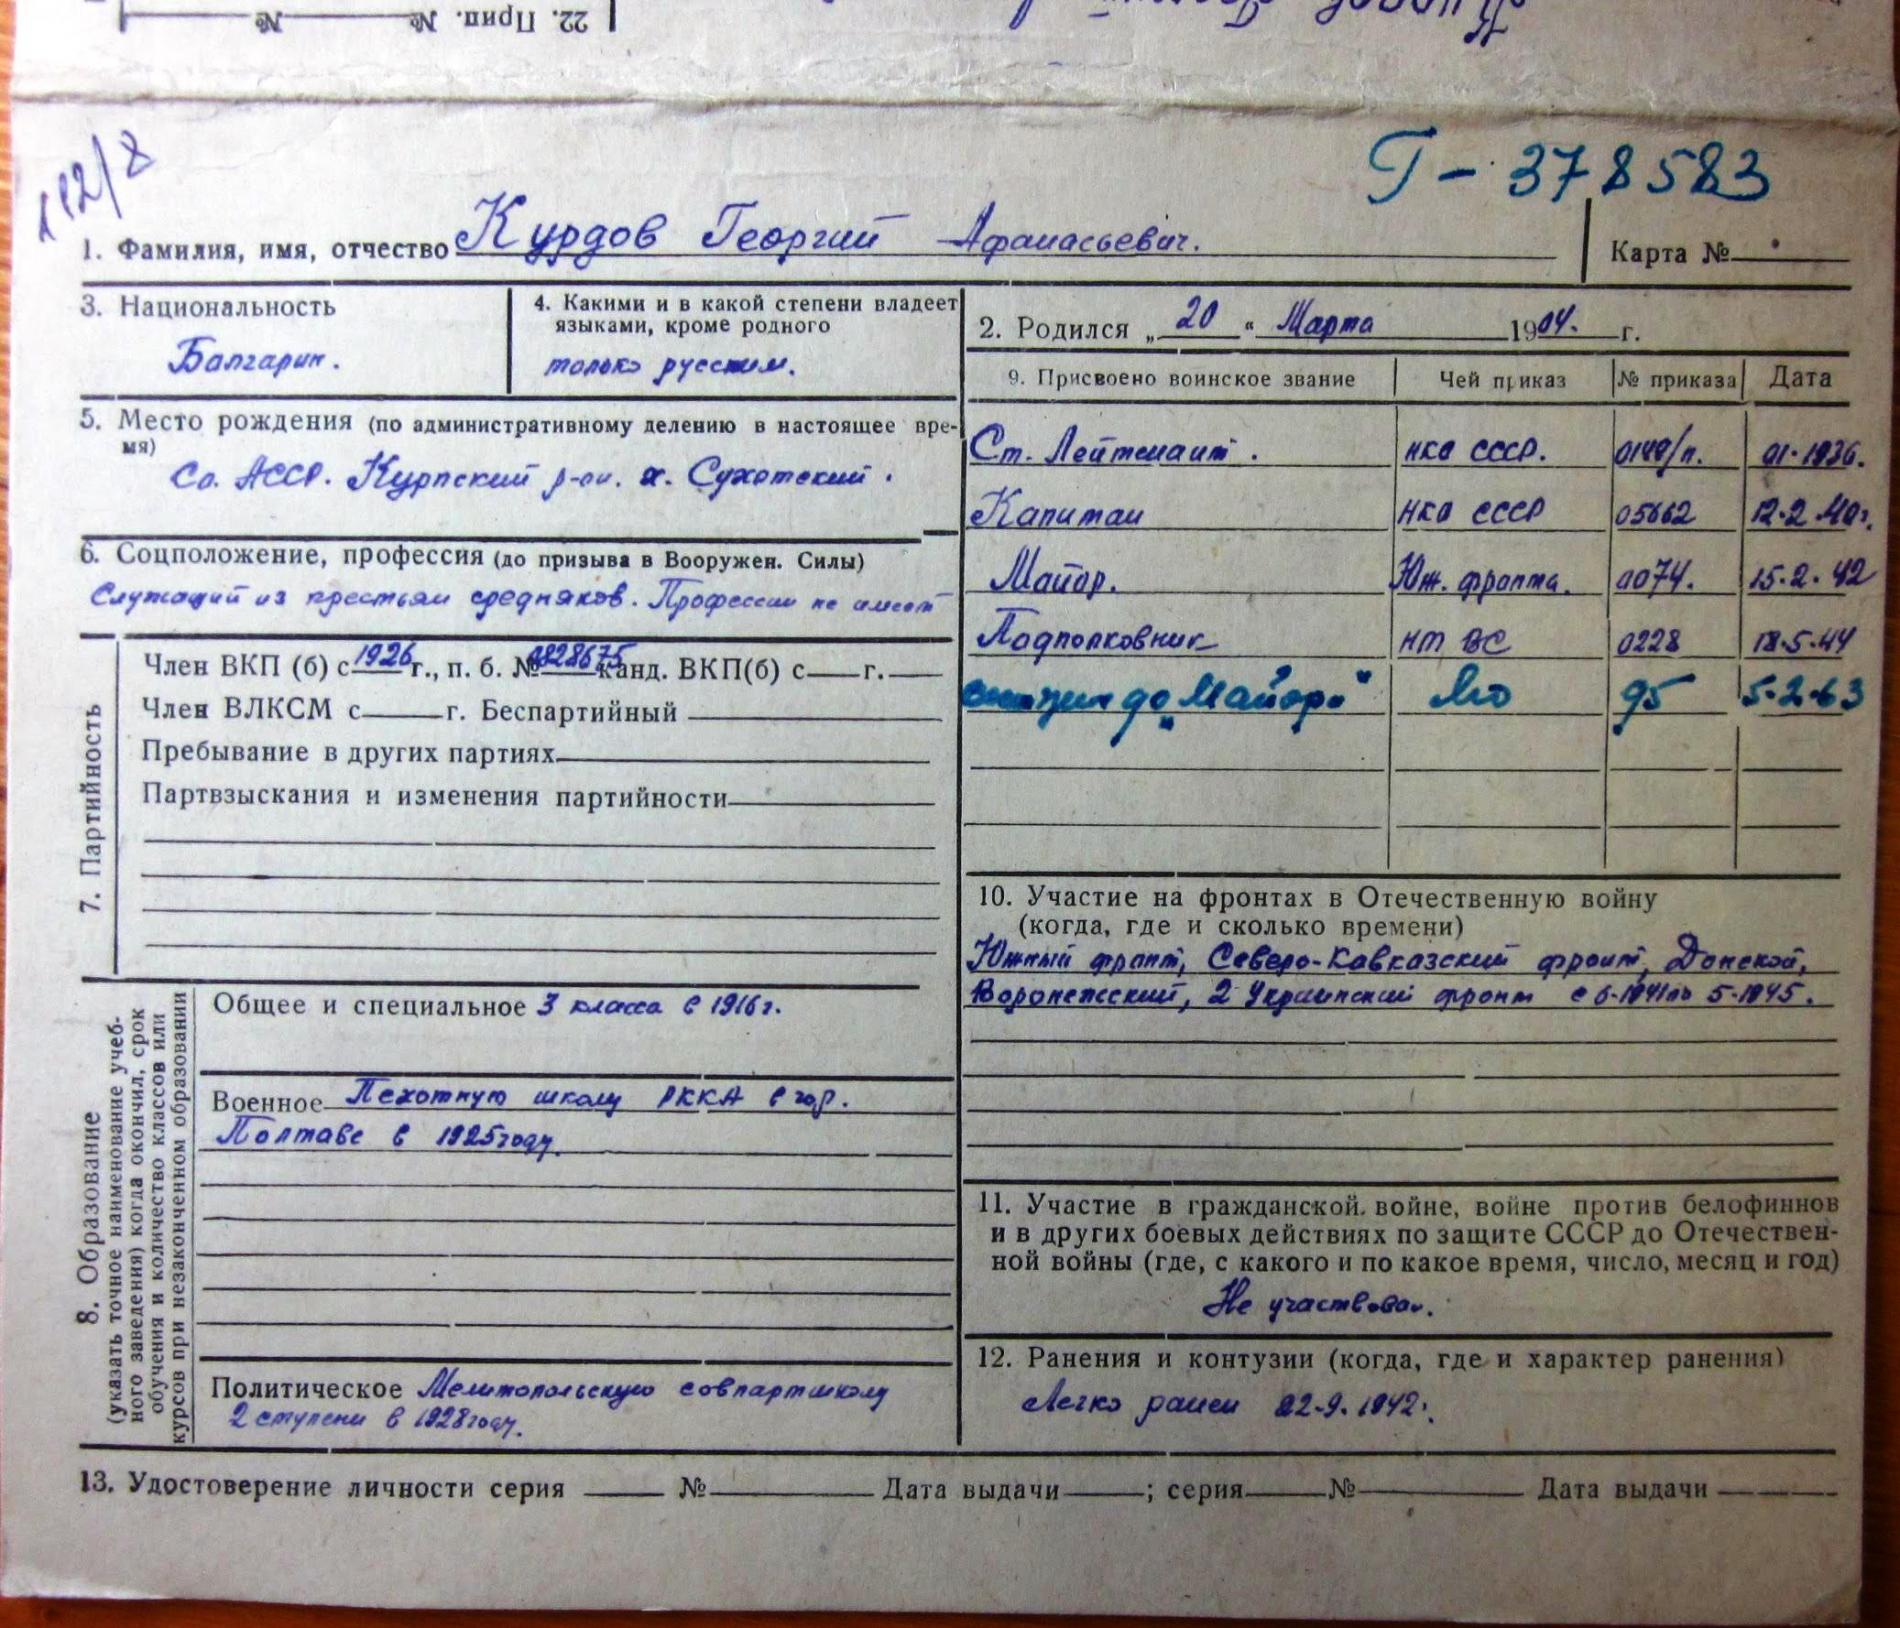 22. Прип. № № 
112/8
Г - 378583
1. Фамилия, имя, отчество Курдов Георгий Афанасьевич.
Карта №
3. Национальность
Болгарин.
4. Какими и в какой степени владеет
языками, кроме родного
только русским.
2. Родился „ 20 “ Марта 1904. г.
5. Место рождения (по административному делению в настоящее вре-
мя)
Со. АССР. Курпский р-он. х. Сухотский.
6. Соцположение, профессия (до призыва в Вооружен. Силы)
Служащий из крестьян средняков. Профессии не имеет
7. Партийность
Член ВКП (б) с 1926 г., п. б. № 0828675 канд. ВКП(б) с г.
Член ВЛКСМ с г. Беспартийный
Пребывание в других партиях
Партвзыскания и изменения партийности
8. Образование
(указать точное наименование учеб-
ного заведения) когда окончил, срок
обучения и количество классов или
курсов при незаконченном образовании
Общее и специальное 3 класса в 1916 г.
Военное Пехотную школу РККА в гор.
Полтаве в 1925 году.
Политическое Мелитопольскую совпартшколу
2 ступени в 1928 году.
9. Присвоено воинское звание Чей приказ № приказа Дата
Ст. Лейтенант. НКО СССР. 0149/п. 01.1936.
Капитан НКО СССР 05662 12.2.40г.
Майор. Юж. фронта. 0074. 15.2.42
Подполковник НТ ВС 0228 18.5.44
до „Майора“ 95 5.2.63
10. Участие на фронтах в Отечественную войну
(когда, где и сколько времени)
Южный фронт, Северо-Кавказский фронт, Донской,
Воронежский, 2 Украинский фронт с 6-1941 по 5-1945.
11. Участие в гражданской войне, войне против белофиннов
и в других боевых действиях по защите СССР до Отечествен-
ной войны (где, с какого и по какое время, число, месяц и год)
Не участвовал.
12. Ранения и контузии (когда, где и характер ранения)
Легко ранен 22.9.1942.
13. Удостоверение личности серия № Дата выдачи ; серия № Дата выдачи